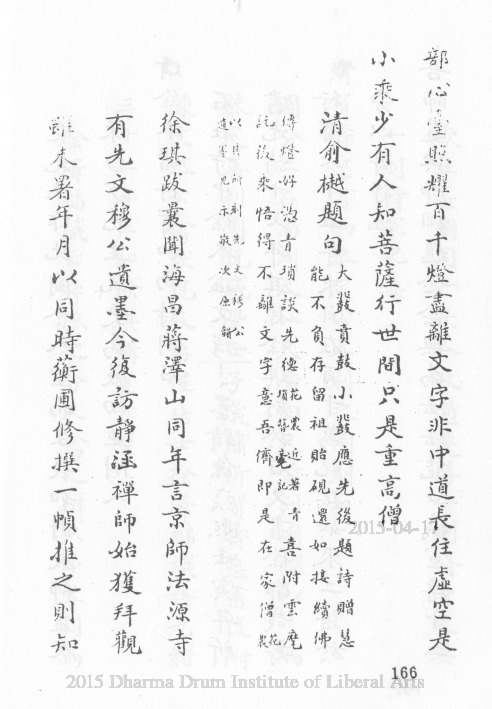 部心臺照耀百千燈盡離文字非中道長住虛空是
小乘少有人知菩薩行世間只是重高僧
清俞樾題句
大叢賁鼓小叢應先後題詩贈慧
能不負存留祖貽硯還如接續佛
傳燈好憑青瑣談先德
花農近著青
瑣簪毫記
喜附雲麾
託後乘悟得不離文字意吾儕即是在家僧
花農
以所刻先文穆公
遺墨見示敬次原韻
徐琪跋曩聞海昌蔣澤山同年言京師法源寺
有先文穆公遺墨今復訪靜涵禪師始獲拜觀
雖未署年月以同時蘅圃修撰一幀推之則知
166
2015-04-17
2015 Dharma Drum Institute of Liberal Arts